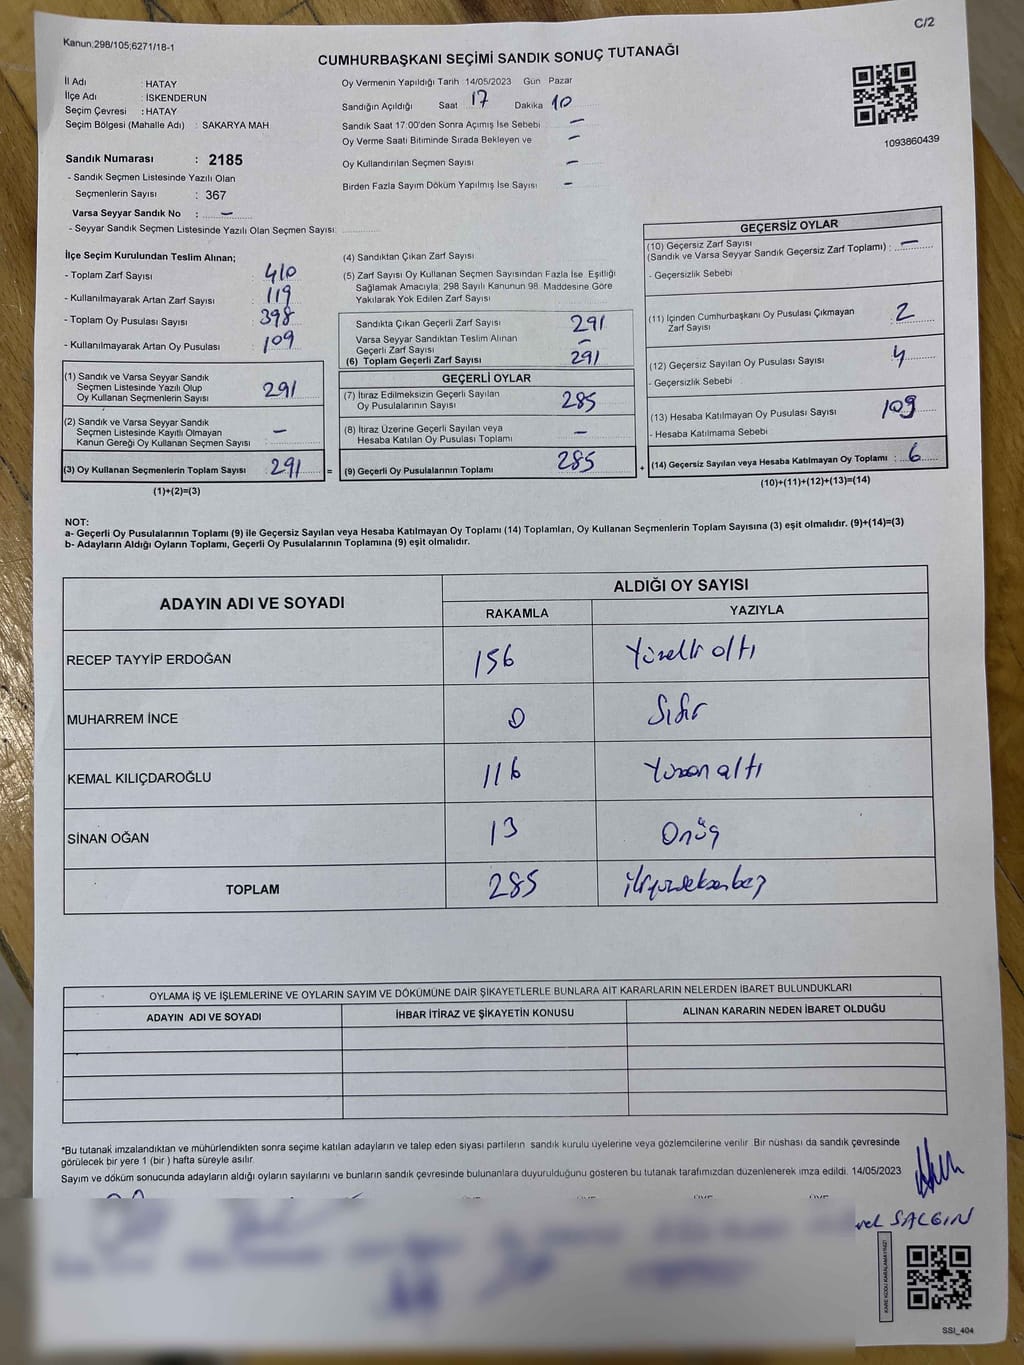 C/2
Kanun;298/105;6271/18-1
CUMHURBAŞKANI SEÇİMİ SANDIK SONUÇ TUTANAĞI
İl Adı : HATAY
İlçe Adı : İSKENDERUN
Seçim Çevresi : HATAY
Seçim Bölgesi (Mahalle Adı) : SAKARYA MAH
Sandık Numarası : 2185
- Sandık Seçmen Listesinde Yazılı Olan
Seçmenlerin Sayısı : 367
Varsa Seyyar Sandık No : –
- Seyyar Sandık Seçmen Listesinde Yazılı Olan Seçmen Sayısı:
Oy Vermenin Yapıldığı Tarih 14/05/2023 Gün Pazar
Sandığın Açıldığı Saat 17 Dakika 10
Sandık Saat 17:00'den Sonra Açımış İse Sebebi : –
Oy Verme Saati Bitiminde Sırada Bekleyen ve –
Oy Kullandırılan Seçmen Sayısı –
Birden Fazla Sayım Döküm Yapılmış İse Sayısı –
1093860439
İlçe Seçim Kurulundan Teslim Alınan;
- Toplam Zarf Sayısı : 410
- Kullanılmayarak Artan Zarf Sayısı : 119
- Toplam Oy Pusulası Sayısı : 398
- Kullanılmayarak Artan Oy Pusulası : 109
(1) Sandık ve Varsa Seyyar Sandık
Seçmen Listesinde Yazılı Olup
Oy Kullanan Seçmenlerin Sayısı : 291
(2) Sandık ve Varsa Seyyar Sandık
Seçmen Listesinde Kayıtlı Olmayan
Kanun Gereği Oy Kullanan Seçmen Sayısı : –
(3) Oy Kullanan Seçmenlerin Toplam Sayısı : 291 =
(1)+(2)=(3)
(4) Sandıktan Çıkan Zarf Sayısı
(5) Zarf Sayısı Oy Kullanan Seçmen Sayısından Fazla İse, Eşitliği
Sağlamak Amacıyla; 298 Sayılı Kanunun 98. Maddesine Göre
Yakılarak Yok Edilen Zarf Sayısı
Sandıkta Çıkan Geçerli Zarf Sayısı 291
Varsa Seyyar Sandıktan Teslim Alınan
Geçerli Zarf Sayısı –
(6) Toplam Geçerli Zarf Sayısı 291
GEÇERLİ OYLAR
(7) İtiraz Edilmeksizin Geçerli Sayılan
Oy Pusulalarının Sayısı 285
(8) İtiraz Üzerine Geçerli Sayılan veya
Hesaba Katılan Oy Pusulası Toplamı –
(9) Geçerli Oy Pusulalarının Toplamı 285 +
GEÇERSİZ OYLAR
(10) Geçersiz Zarf Sayısı
(Sandık ve Varsa Seyyar Sandık Geçersiz Zarf Toplamı) : –
- Geçersizlik Sebebi
(11) İçinden Cumhurbaşkanı Oy Pusulası Çıkmayan
Zarf Sayısı : 2
(12) Geçersiz Sayılan Oy Pusulası Sayısı 4
- Geçersizlik Sebebi :
(13) Hesaba Katılmayan Oy Pusulası Sayısı 109
- Hesaba Katılmama Sebebi
(14) Geçersiz Sayılan veya Hesaba Katılmayan Oy Toplamı : 6
(10)+(11)+(12)+(13)=(14)
NOT:
a- Geçerli Oy Pusulalarının Toplamı (9) ile Geçersiz Sayılan veya Hesaba Katılmayan Oy Toplamı (14) Toplamları, Oy Kullanan Seçmenlerin Toplam Sayısına (3) eşit olmalıdır. (9)+(14)=(3)
b- Adayların Aldığı Oyların Toplamı, Geçerli Oy Pusulalarının Toplamına (9) eşit olmalıdır.
ADAYIN ADI VE SOYADI ALDIĞI OY SAYISI
RAKAMLA YAZIYLA
RECEP TAYYİP ERDOĞAN 156 Yüzelli altı
MUHARREM İNCE 0 Sıfır
KEMAL KILIÇDAROĞLU 116 Yüzon altı
SİNAN OĞAN 13 Onüç
TOPLAM 285 ikiyüzseksenbeş
OYLAMA İŞ VE İŞLEMLERİNE VE OYLARIN SAYIM VE DÖKÜMÜNE DAİR ŞİKAYETLERLE BUNLARA AİT KARARLARIN NELERDEN İBARET BULUNDUKLARI
ADAYIN ADI VE SOYADI İHBAR İTİRAZ VE ŞİKAYETİN KONUSU ALINAN KARARIN NEDEN İBARET OLDUĞU
*Bu tutanak imzalandıktan ve mühürlendikten sonra seçime katılan adayların ve talep eden siyasi partilerin sandık kurulu üyelerine veya gözlemcilerine verilir. Bir nüshası da sandık çevresinde
görülecek bir yere 1 (bir ) hafta süreyle asılır.
Sayım ve döküm sonucunda adayların aldığı oyların sayılarını ve bunların sandık çevresinde bulunanlara duyurulduğunu gösteren bu tutanak tarafımızdan düzenlenerek imza edildi. 14/05/2023
SALGIN
KARE KODU KARALAMAYINIZ!
SSI_404